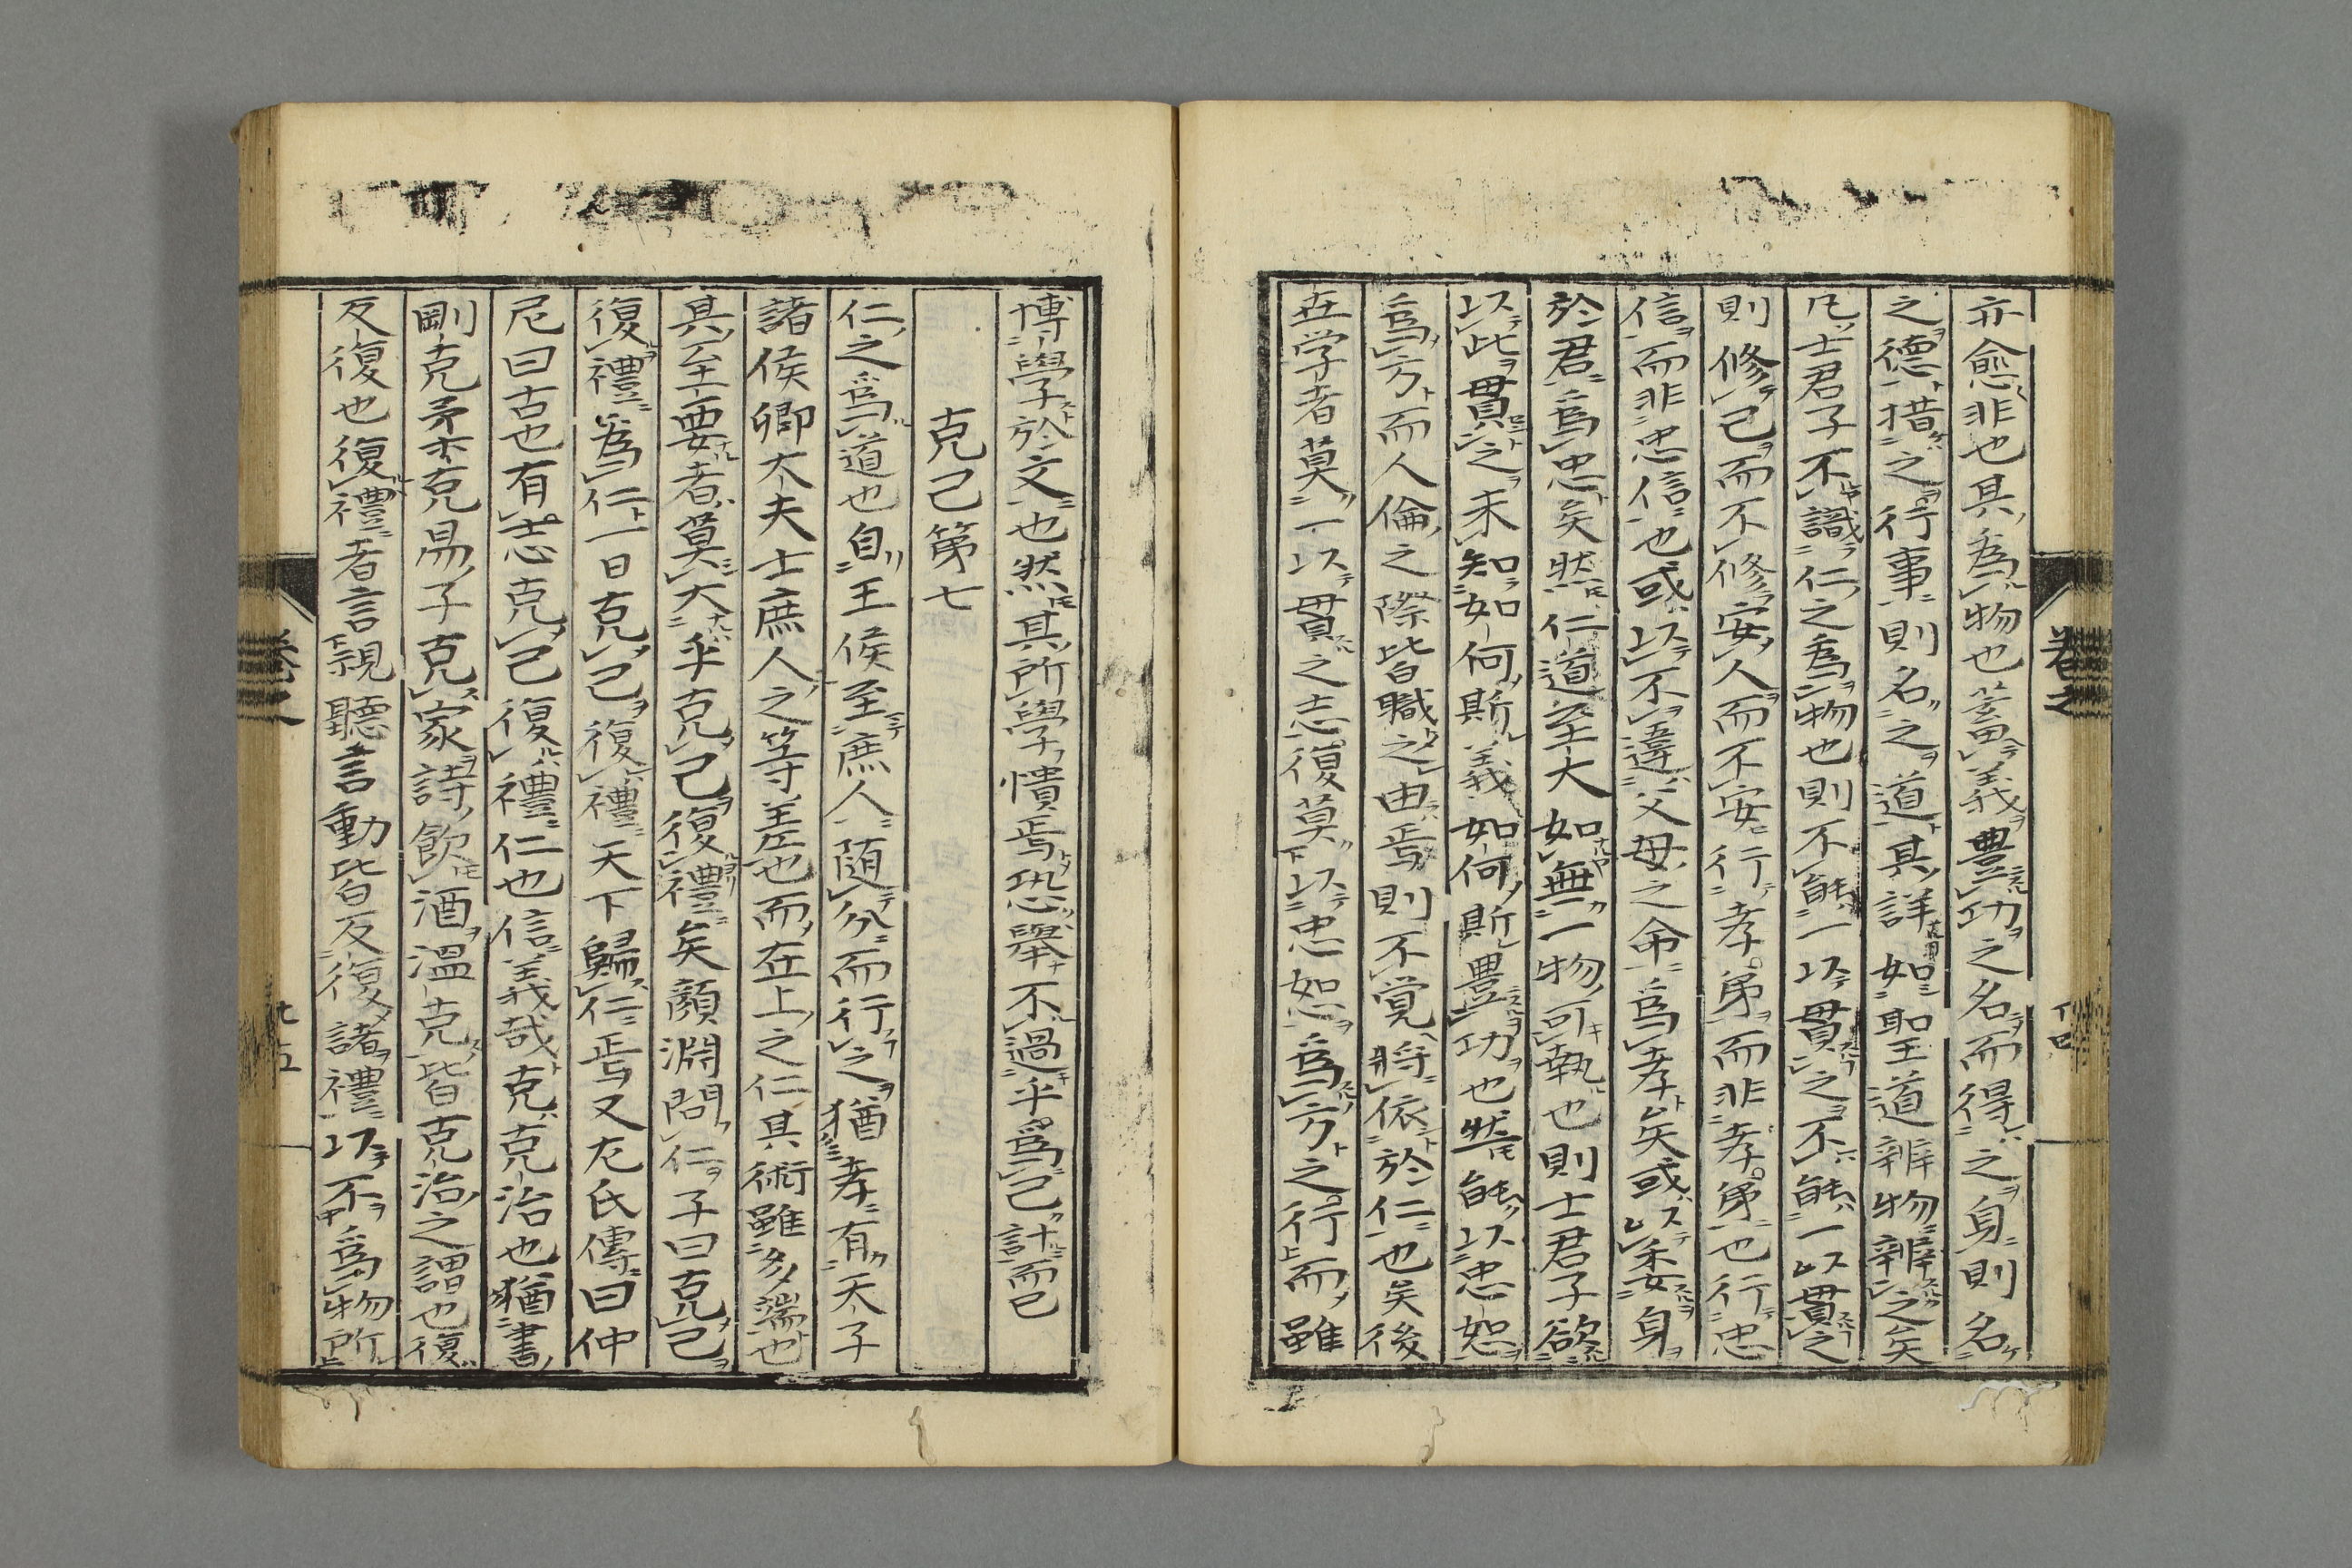 亦愈非也其為物也蓄義豊功之名而得之身則名
之德措之行事則名之道其詳如聖道辨物辨之矣
凡士君子不識仁之為物也則不能一以貫之不能一以貫之
則修己而不修安人而不安行孝弟而非孝弟也行忠
信而非忠信也或以不違父母之命為孝矣或以委身
於君為忠矣然仁道至大如無一物可執也則士君子欲
以此貫之未知如何斯義如何斯豊功也然能以忠恕
為方而人倫之際皆職之由焉則不覚將依於仁也矣後
在学者莫一以貫之志復莫以忠恕為方之行而雖
博學於文也然其所學憒焉恐舉不過乎為己計而已
克己第七
仁之為道也自王侯至庶人随分而行之猶孝有天子
諸侯卿大夫士庶人之等差也而在上之仁其術雖多端也
其至要者莫大乎克己復禮矣顔淵問仁子曰克己
復禮為仁一日克己復禮天下歸仁焉又左氏傳曰仲
尼曰古也有志克己復禮仁也信義哉克克治也猶書
剛克柔克易子克家詩飲酒溫克皆克治之謂也復
反復也復禮者言視聽言動皆反復諸禮以不為物所
卷之
卷之